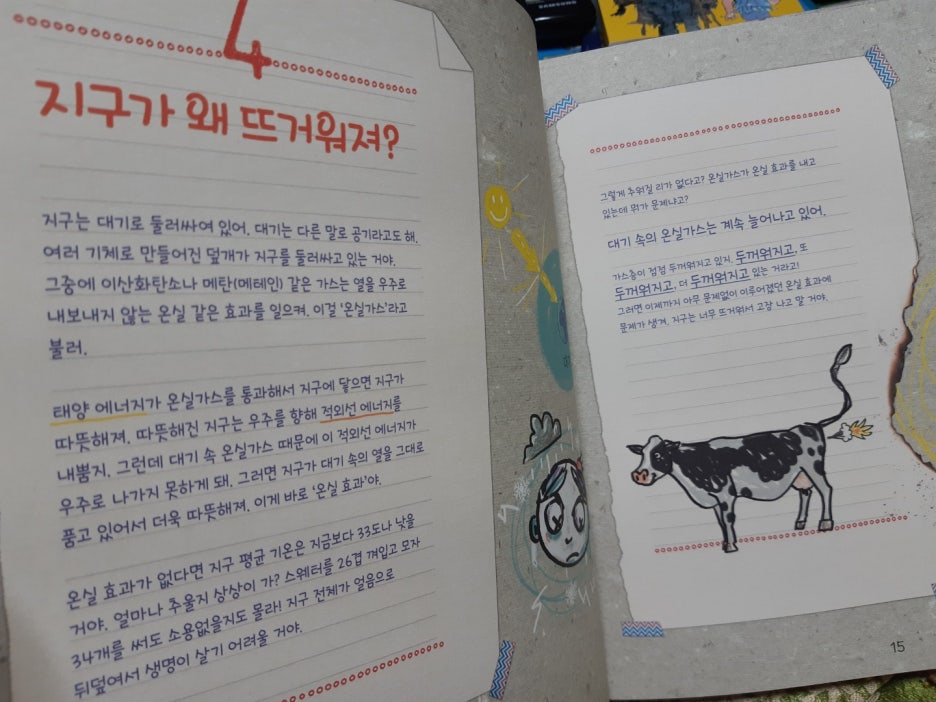 SAMSUNG
4
지구가 왜 뜨거워져?
지구는 대기로 둘러싸여 있어. 대기는 다른 말로 공기라고도 해.
여러 기체로 만들어진 덮개가 지구를 둘러싸고 있는 거야.
그중에 이산화탄소나 메탄(메테인) 같은 가스는 열을 우주로
내보내지 않는 온실 같은 효과를 일으켜. 이걸 '온실가스'라고
불러.
태양 에너지가 온실가스를 통과해서 지구에 닿으면 지구가
따뜻해져. 따뜻해진 지구는 우주를 향해 적외선 에너지를
내뿜지. 그런데 대기 속 온실가스 때문에 이 적외선 에너지가
우주로 나가지 못하게 돼. 그러면 지구가 대기 속의 열을 그대로
품고 있어서 더욱 따뜻해져. 이게 바로 '온실 효과'야.
온실 효과가 없다면 지구 평균 기온은 지금보다 33도나 낮을
거야. 얼마나 추울지 상상이 가? 스웨터를 26겹 껴입고 모자
34개를 써도 소용없을지도 몰라! 지구 전체가 얼음으로
뒤덮여서 생명이 살기 어려울 거야.
그렇게 추워질 리가 없다고? 온실가스가 온실 효과를 내고
있는데 뭐가 문제냐고?
대기 속의 온실가스는 계속 늘어나고 있어.
가스층이 점점 두꺼워지고 있지. 두꺼워지고, 또
두꺼워지고, 더 두꺼워지고 있는 거라고!
그러면 이제까지 아무 문제없이 이루어졌던 온실 효과에
문제가 생겨. 지구는 너무 뜨거워서 고장 나고 말 거야.
15